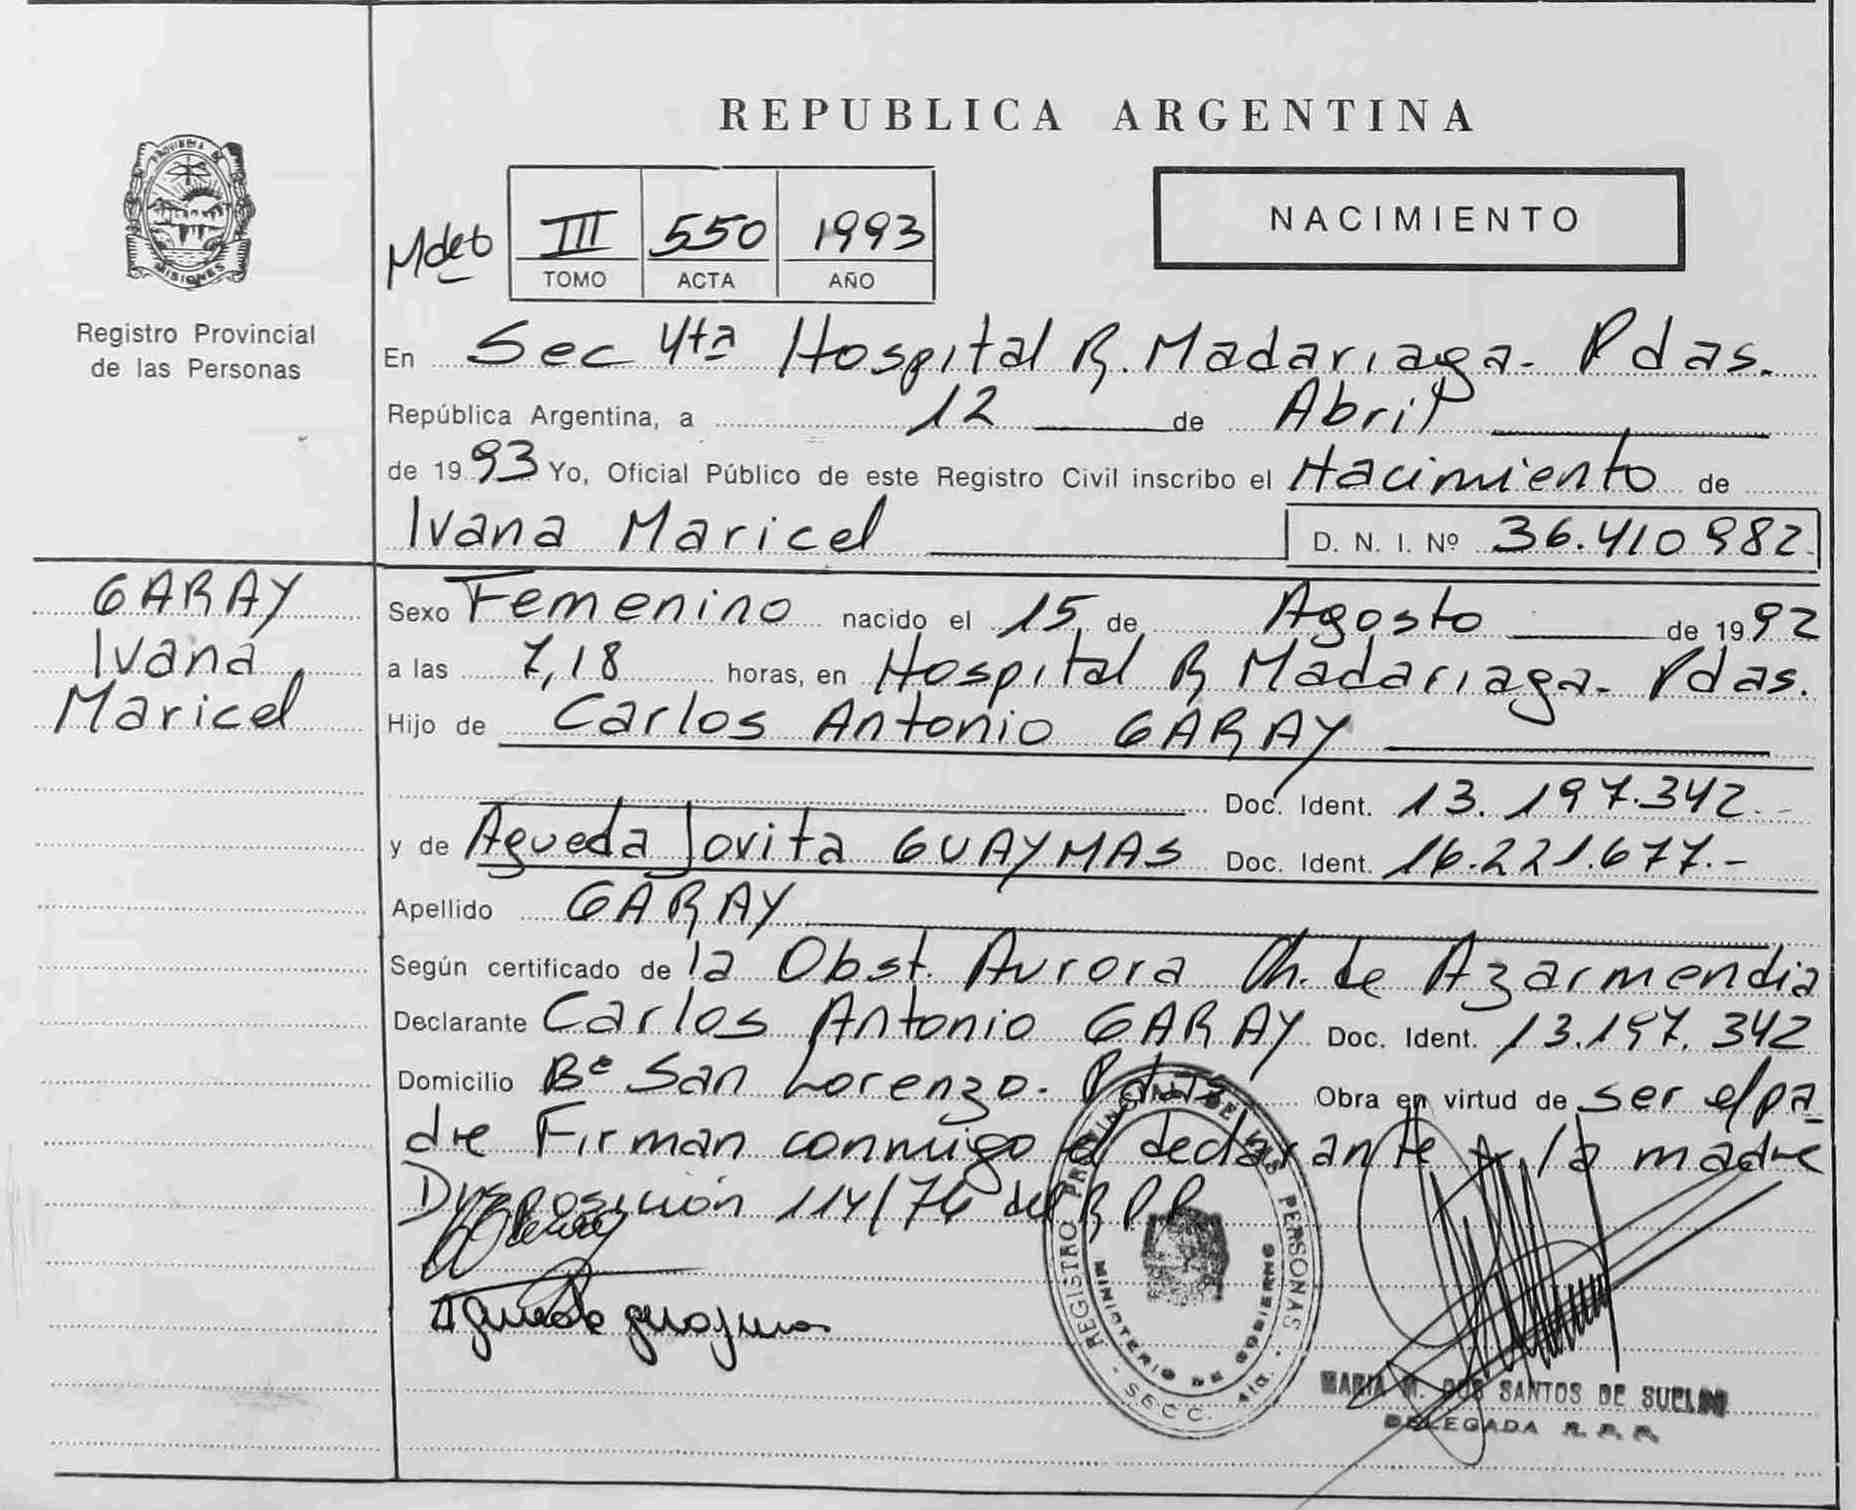 REPUBLICA ARGENTINA
PROVINCIA DE
MISIONES
Registro Provincial
de las Personas
III 550 1993
TOMO ACTA AÑO
NACIMIENTO
En Sec 4ta Hospital R. Madariaga - Pdas.
República Argentina, a 12 de Abril
de 1993 Yo, Oficial Público de este Registro Civil inscribo el Nacimiento de
Ivana Maricel D. N. I. Nº 36.410982
GARAY
Ivana
Maricel
Sexo Femenino nacido el 15 de Agosto de 1992
a las 7,18 horas, en Hospital R Madariaga - Pdas.
Hijo de Carlos Antonio GARAY
Doc. Ident. 13.197.342.-
y de Agueda Jovita GUAYMAS Doc. Ident. 16.221.677.-
Apellido GARAY
Según certificado de la Obst. Aurora Ch. de Azarmendia
Declarante Carlos Antonio GARAY Doc. Ident. 13.197.342
Domicilio Bº San Lorenzo - Pdas. Obra en virtud de ser el pa
dre Firman conmigo el declarante y la madre
Disposición 114/76 del R P P
REGISTRO PROVINCIAL DE LAS PERSONAS
MINISTERIO DE GOBIERNO
SECC. 4ta.
MARIA M. DOS SANTOS DE
DELEGADA R. P. P.